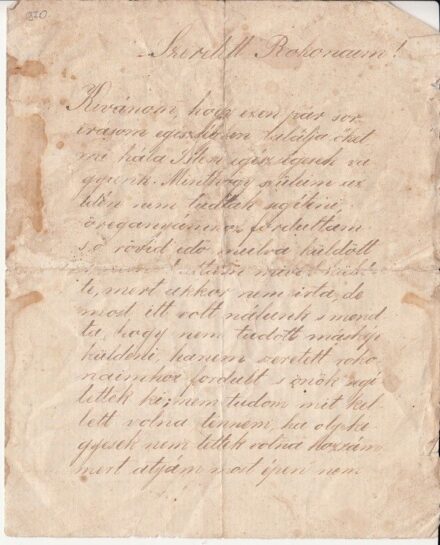 320
Szeretett Rokonaim!
Kivánom, hogy ezen pár sor
irásom egészségben találja őket
mi hála Isten egészségesek va
gyunk. Minthogy szüleim az
idén nem tudtak segiteni
öreganyámhoz fordultam
s ő rövid idő mulva küldött
te, mert akkor nem irta, de
most itt volt nálunk s mond
ta, hogy nem tudott máskép
küldeni, hanem szeretett roko
naimhoz fordult s önök segi
tették ki; nem tudom mit kel
lett volna tennem, ha oly ke
gyesek nem lettek volna hozzám
mert atyám most épen nem